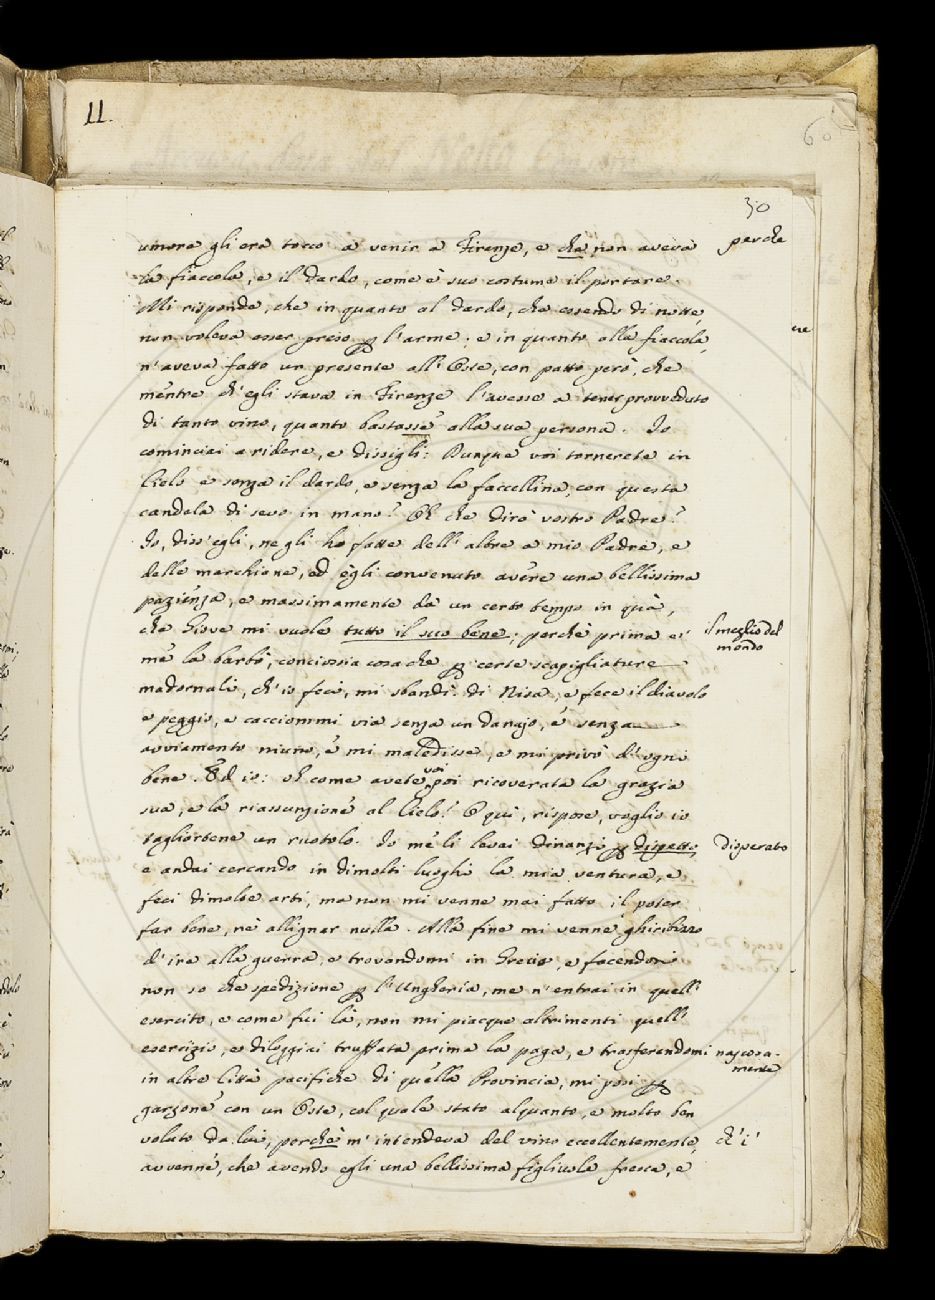 11.
60
30
umore gli era tocco a venir a Firenze, e che non aveva perche
la fiaccola, e il dardo, come è suo costume il portare.
Mi risponde, che in quanto al dardo, che essendo di notte,
non voleva esser preso p l'arme; e in quanto alla fiaccola,
n'aveva fatto un presente all'Oste, con patto però, che
mentre ch'egli stava in Firenze l'avesse a tener provveduto
di tanto vino, quanto bastasse alla sua persona. Io
cominciai a ridere, e dissigli: Dunque voi tornerete in
Cielo e senza il dardo, e senza la faccellina, con questa
candela di sevo in mano? Oh che dirà vostro Padre?
Io, diss'egli, ne gli ho fatte dell'altre a mio Padre, e
delle marchione, ed egli convenuto avere una bellissima
pazienza, e massimamente da un certo tempo in quà,
che Giove mi vuole tutto il suo bene; perchè prima e' il meglio del mondo
me la barbò, conciossia cosa che p certe scapigliature
madornali, ch'io feci, mi sbandì di Nisa, e fece il diavolo
e peggio, e cacciommi via senza un danajo, e senza
avviamento niuno, e mi maledisse, e mi privò d'ogni
bene. Ed io: oh come avete voi poi ricoverata la grazia
sua, e la riassunzione al Cielo? O quì, rispose, voglio io
tagliartene un ruotolo. Io me li levai dinanzi p dispetto, disperato
e andai cercando in dimolti luoghi la mia ventura, e
feci dimolte arti, ma non mi venne mai fatto il poter
far bene, nè allignar nulla. Alla fine mi venne ghiribizzo
d'ire alla guerra, e trovandomi in Grecia, e facendosi
non so che spedizione p l'Ungheria, me n'entrai in quell'
esercito, e come fui là, non mi piacque altrimenti quell'
esercizio, e dileggiai truffata prima la paga, e trasferendomi nascosamente
in altre Città pacifiche di quella Provincia, mi posi p
garzone con un Oste, col quale stato alquanto, e molto ben
voluto da lui, perchè m'intendeva del vino eccellentemente, ch'i'
avvenne, che avendo egli una bellissima figliuola fresca, e